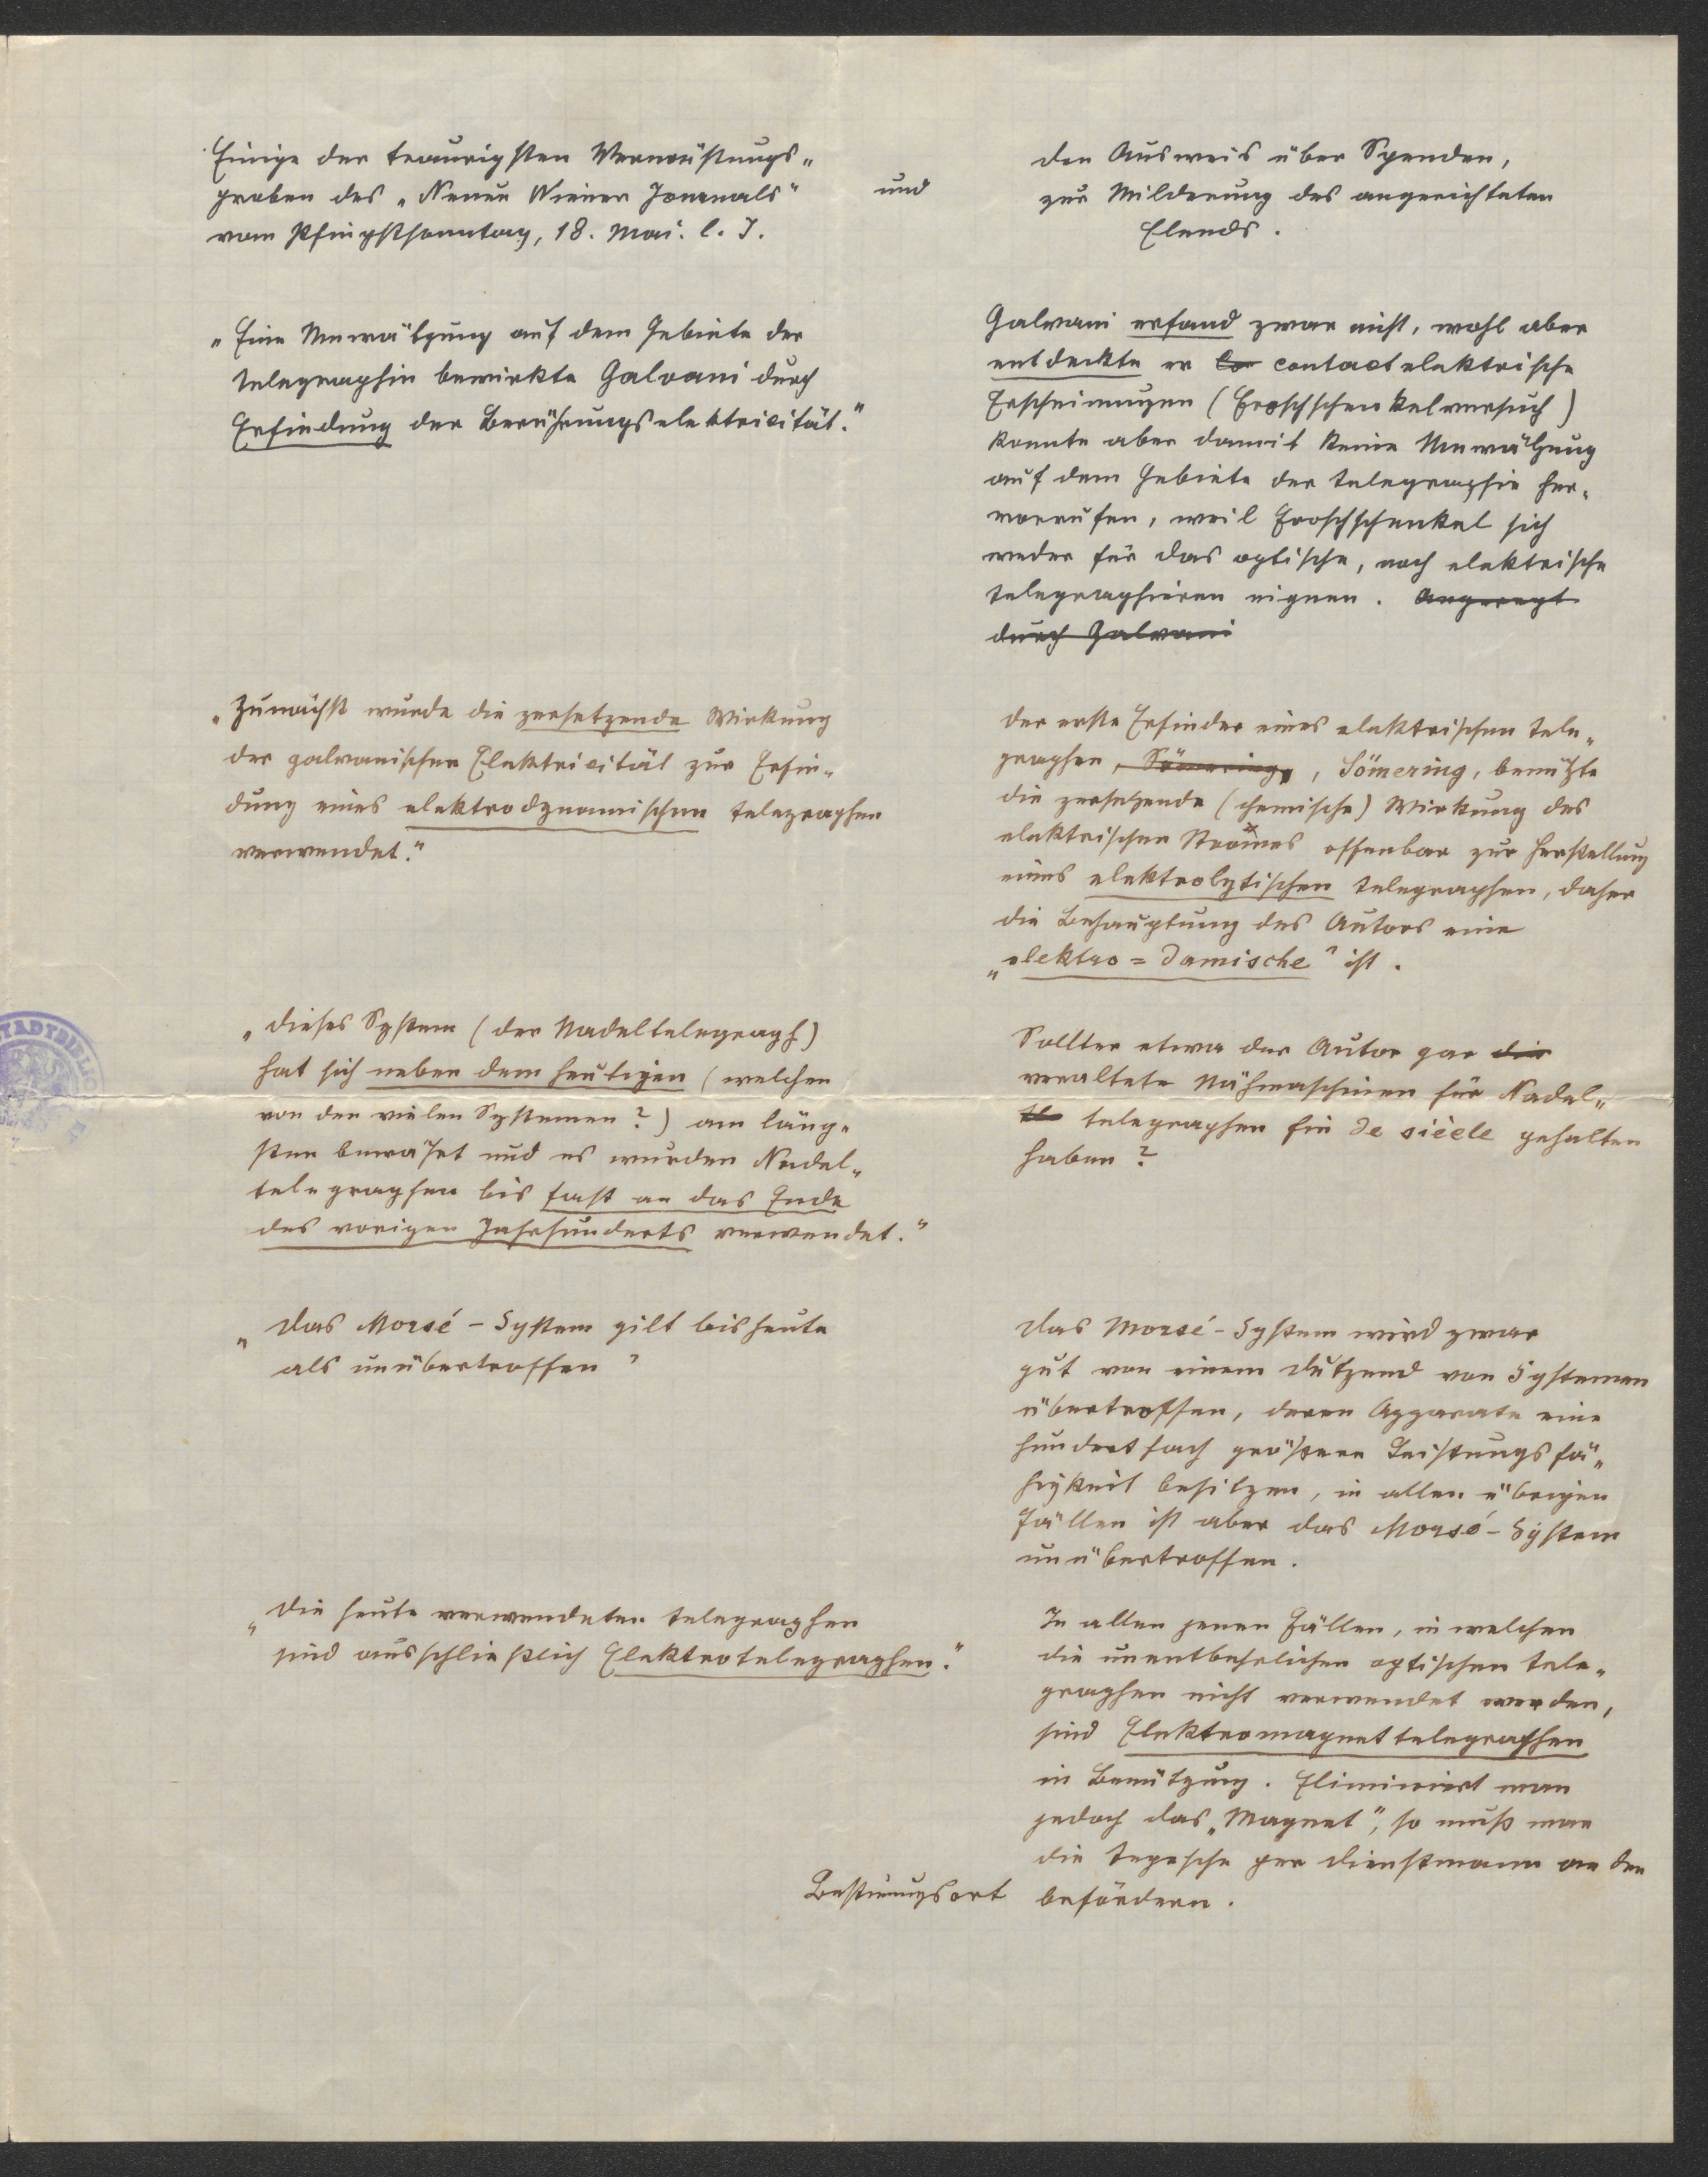 Einige der traurigsten Verwüstungs„
proben des „Neuen Wiener Journals"
vom Pfingstsonntag, 18. Mai. l. J.
und
den Ausweis über Spenden,
zur Milderung des angerichteten
Elends.
„Eine Umwälzung auf dem Gebiete der
Telegraphie bewirkte Galvani durch
Erfindung der Berührungselektricität."
Galvani erfand zwar nicht, wohl aber
entdeckte er co contactelektrische
Erscheinungen (Froschschenkelversuch)
konnte aber damit keine Umwälzung
auf dem Gebiete der Telegraphie her„
vorrufen, weil Froschschenkel sich
weder für das optische, noch elektrische
Telegraphieren eignen. Angeregt
durch Galvani
„Zunächst wurde die zersetzende Wirkung
der galvanischen Elektricität zur Erfin„
dung eines elektrodynamischen Telegraphen
verwendet."
Der erste Erfinder eines elektrischen Tele„
graphen, Sömering, , Sömering, benützte
die zersetzende (chemische) Wirkung des
elektrischen Stromes offenbar zur Herstellung
eines elektrolytischen Telegraphen, daher
die Behauptung des Autors eine
„elektro=damische" ist.
STADTBIBLIO
„Dieses System (der Nadeltelegraph)
hat sich neben dem heutigen (welchen
von den vielen Systemen?) am läng„
sten bewährt und es wurden Nadel„
telegraphen bis fast an das Ende
des vorigen Jahrhunderts verwendet."
Sollter etwa der Autor gar die
veraltete Nähmaschinen für Nadel„
te telegraphen fin de siècle gehalten
haben?
„Das Morsé-System gilt bis heute
als unübertroffen"
Das Morsé-System wird zwar
gut von einem Dutzend von Systemen
übertroffen, deren Apparate eine
hundertfach größere Leistungsfä„
higkeit besitzen, in allen übrigen
Fällen ist aber das Morsé-System
unübertroffen.
„Die heute verwendeten Telegraphen
sind ausschließlich Elektrotelegraphen."
In allen jenen Fällen, in welchen
die unentbehrlichen optischen Tele„
graphen nicht verwendet werden,
sind Elektromagnettelegraphen
in Benützung. Eliminiert man
jedoch das „Magnet", so muß man
die Depesche per Dienstmann an den
Bestimungsort befördern.